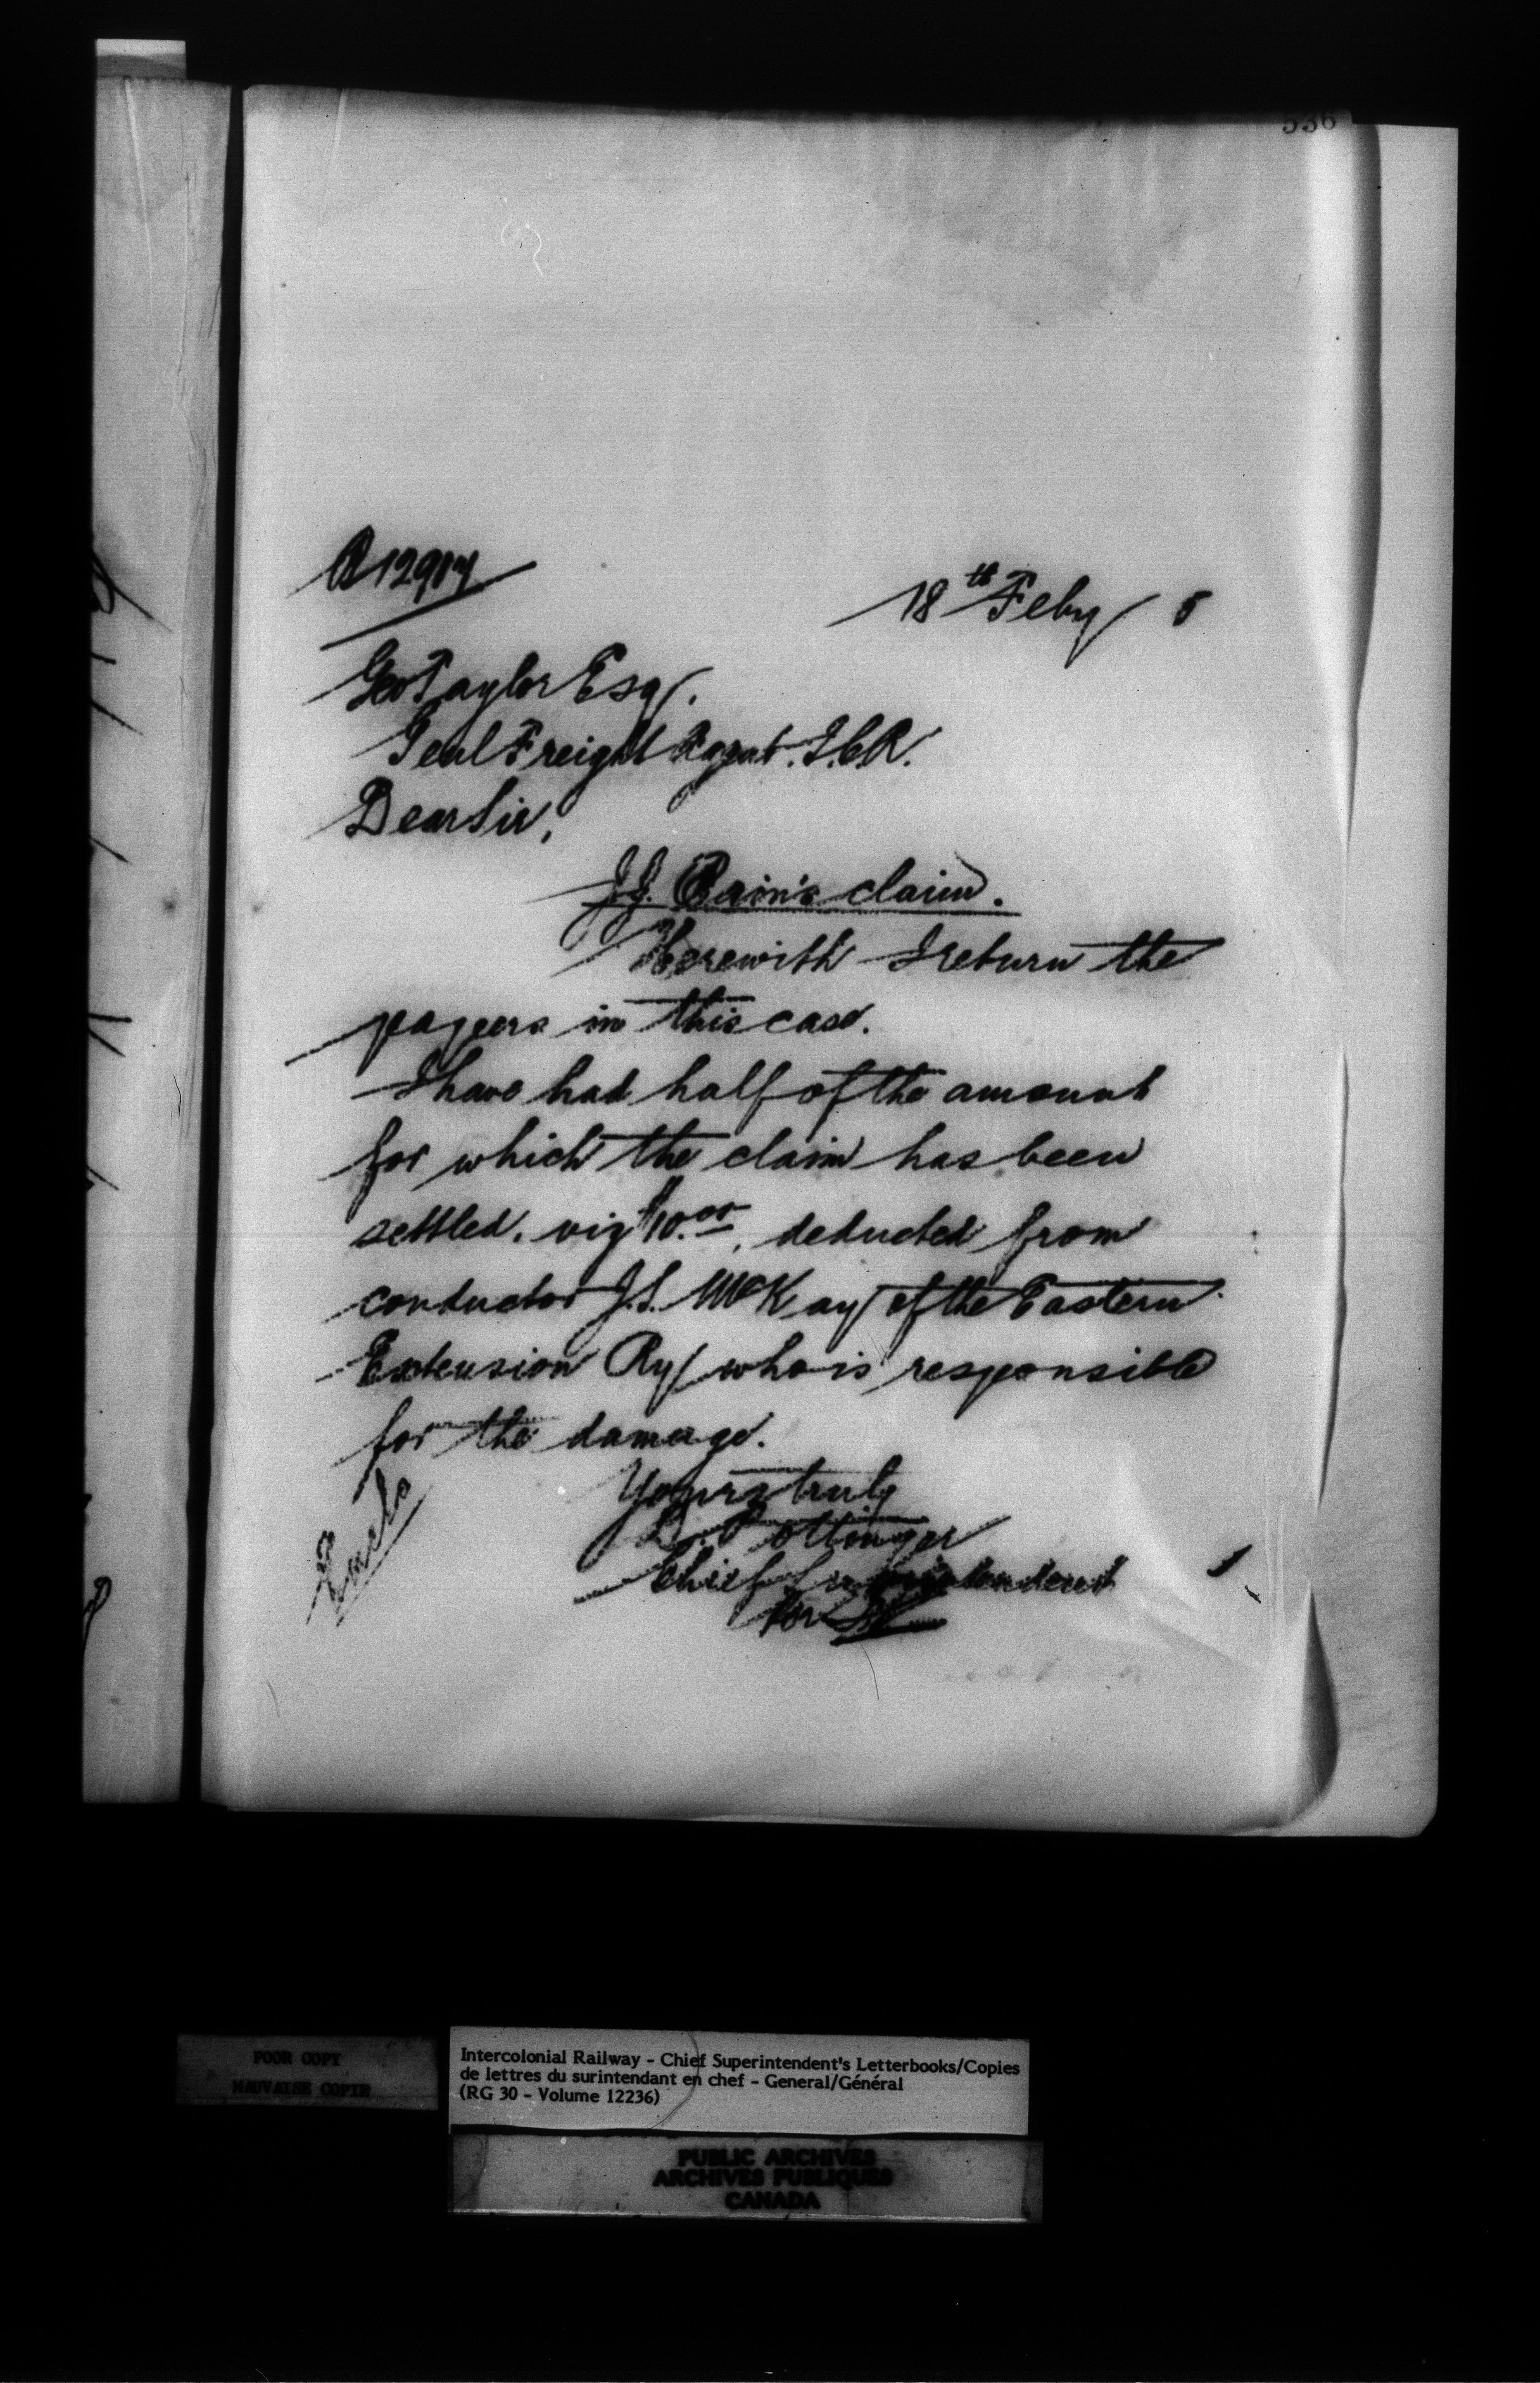 536
18th Feby 5
Geo Taylor Esq.
Genl Freight Agent. I.C.R.
Dear Sir,
J.J. claim.
Herewith I return the
papers in this case.
I have had half of the amount
for which the claim has been
settled. viz $10.00, deducted from
conductor J.S. McKay of the Eastern
Extension Ry who is responsible
for the damage.
Yours truly
D. Pottinger
Chief Superintendent
for
Encls
POOR COPY
MAUVAISE COPIE
Intercolonial Railway - Chief Superintendent's Letterbooks/Copies
de lettres du surintendant en chef - General/Général
(RG 30 - Volume 12236)
PUBLIC ARCHIVES
ARCHIVES PUBLIQUES
CANADA